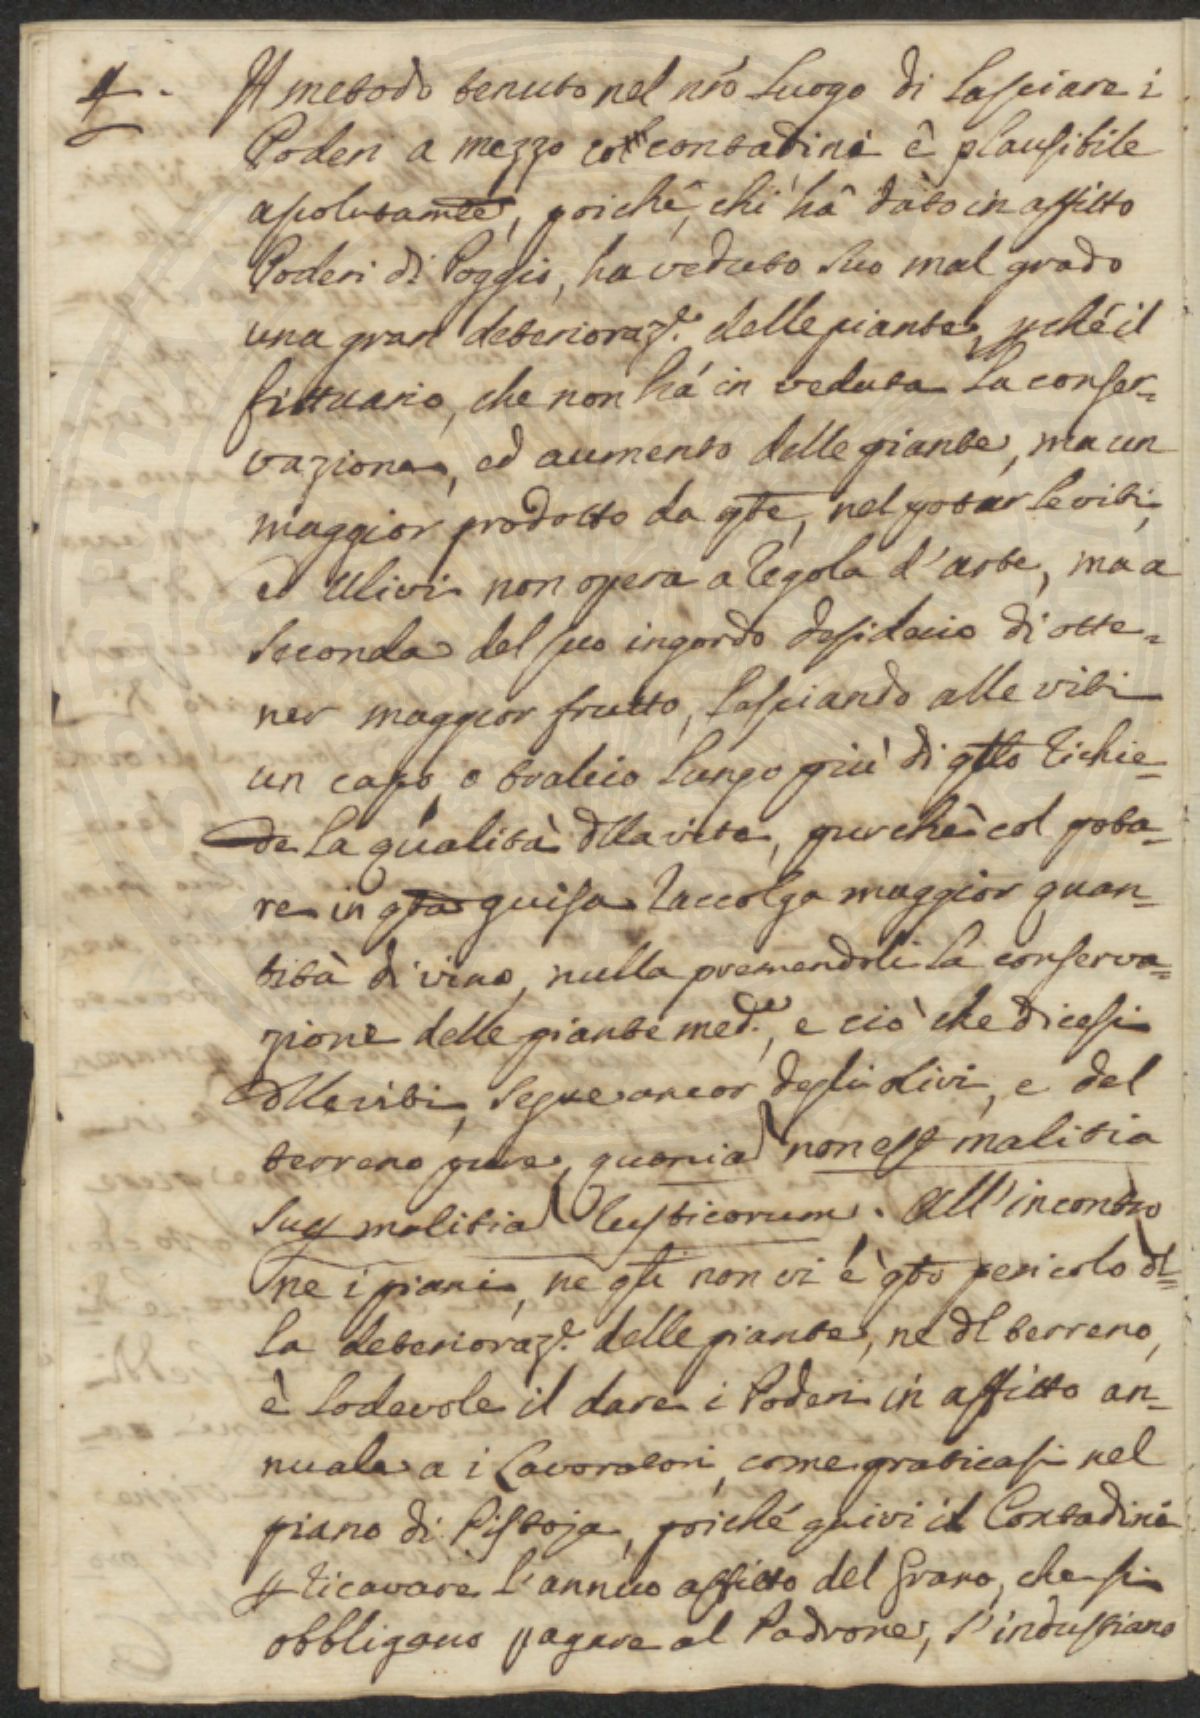 4. Il metodo tenuto nel nro Luogo di lasciare i
Poderi a mezzo coi contadini è plausibile
assolutamte, poichê, chi hà dàto in affitto
Poderi di Poggio, ha veduto suo mal grado
una gran deterioraz.e delle piante, pché il
fittuario, che non há in veduta la conser=
vazione, ed aumento delle piante, ma un
maggior prodotto da qte, nel potar le viti,
ed Ulivi non opera a regola d'arte, ma a
seconda del suo ingordo desiderio di otte=
ner maggior frutto, lasciando alle viti
un capo, o tralcio lungo più di qllo richie=
de la qualità dlla vite, purchè col pota=
re in qta guisa raccolga maggior quan=
tità di vino, nulla premendoli la conserva=
zione delle piante med.e, e ciò che dicesi
dlle viti, segue ancor degli olivi, e del
terreno pure, quonia non est malitia
sup malitia rusticorum. All'incontro
ne i piani, ne qli non vi è qto pericolo dl=
la deterioraz.e delle piante, ne dl terreno,
è lodevole il dare i Poderi in affitto an=
nuale a i Lavoratori, come praticasi nel
piano di Pistoja, poiché quivi i Contadini
p ricavare l'annuo affitto del Grano, che si
obbligano pagare al Padrone, s'industriano